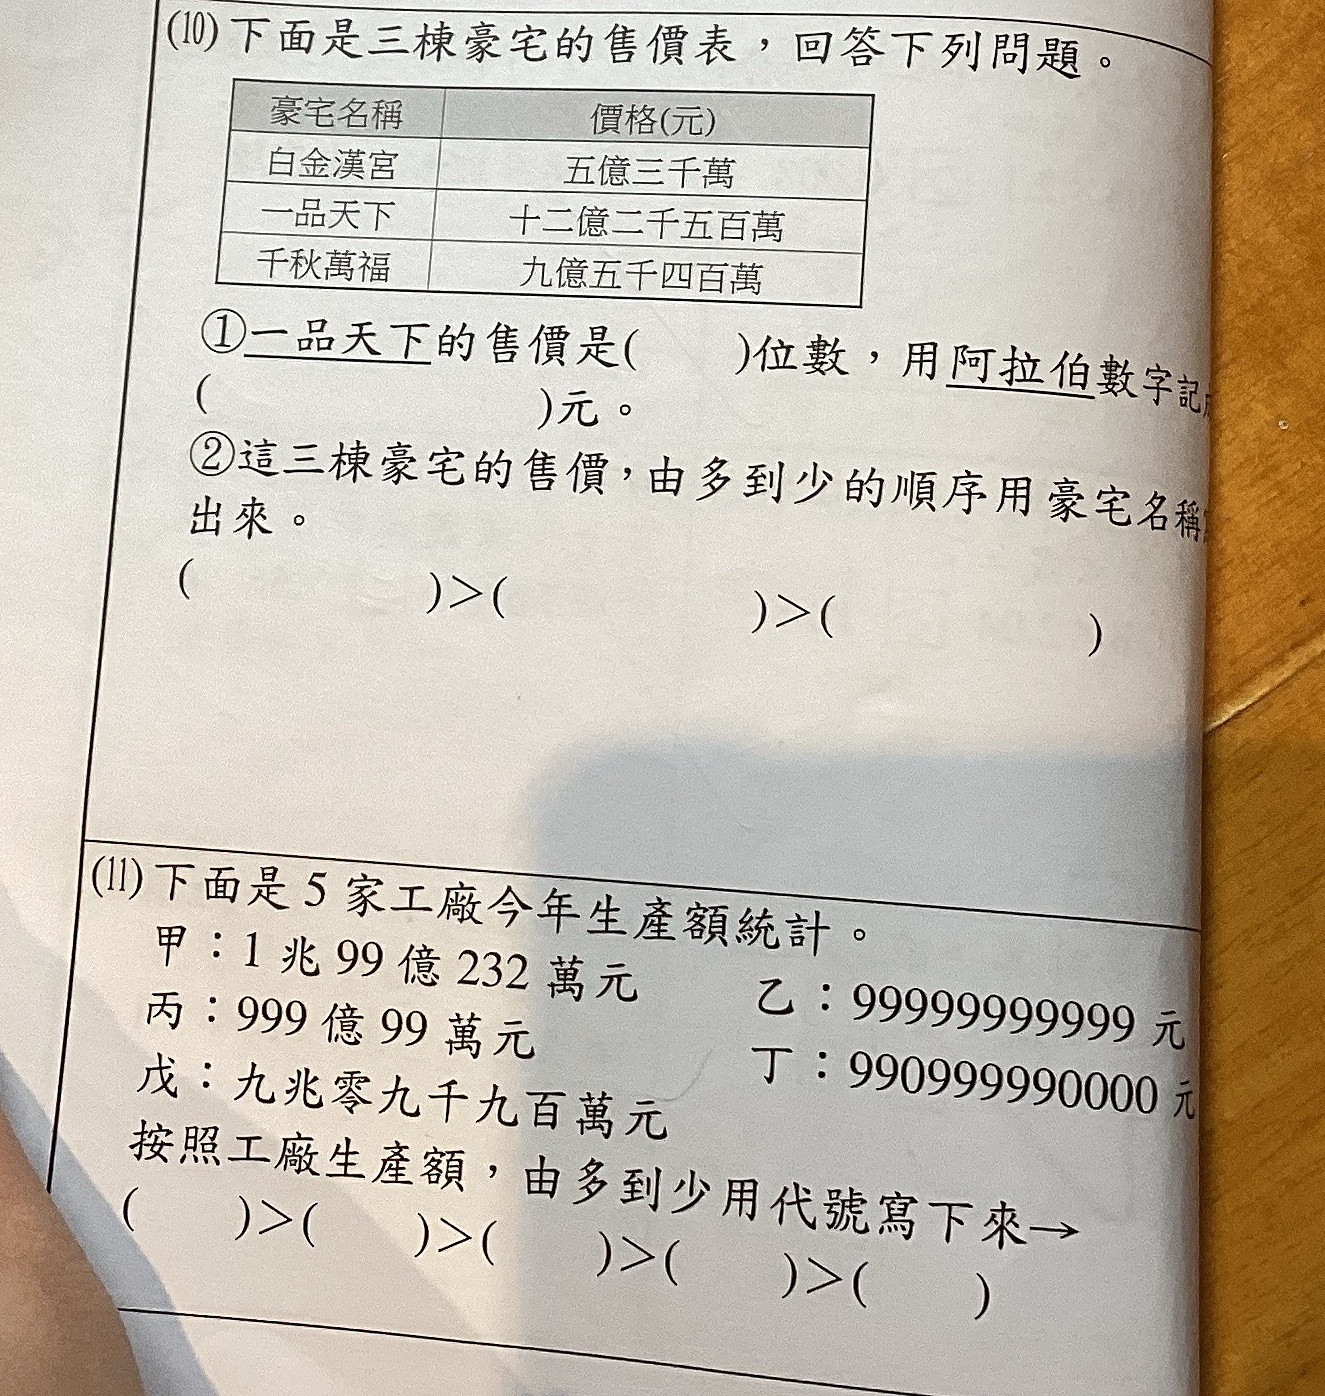 (10)下面是三棟豪宅的售價表，回答下列問題。
豪宅名稱 價格(元)
白金漢宮 五億三千萬
一品天下 十二億二千五百萬
千秋萬福 九億五千四百萬
①一品天下的售價是( )位數，用阿拉伯數字記
( )元。
②這三棟豪宅的售價，由多到少的順序用豪宅名稱
出來。
( )＞( )＞( )
(11)下面是5家工廠今年生產額統計。
甲：1兆99億232萬元 乙：99999999999元
丙：999億99萬元 丁：990999990000元
戊：九兆零九千九百萬元
按照工廠生產額，由多到少用代號寫下來→
( )＞( )＞( )＞( )＞( )